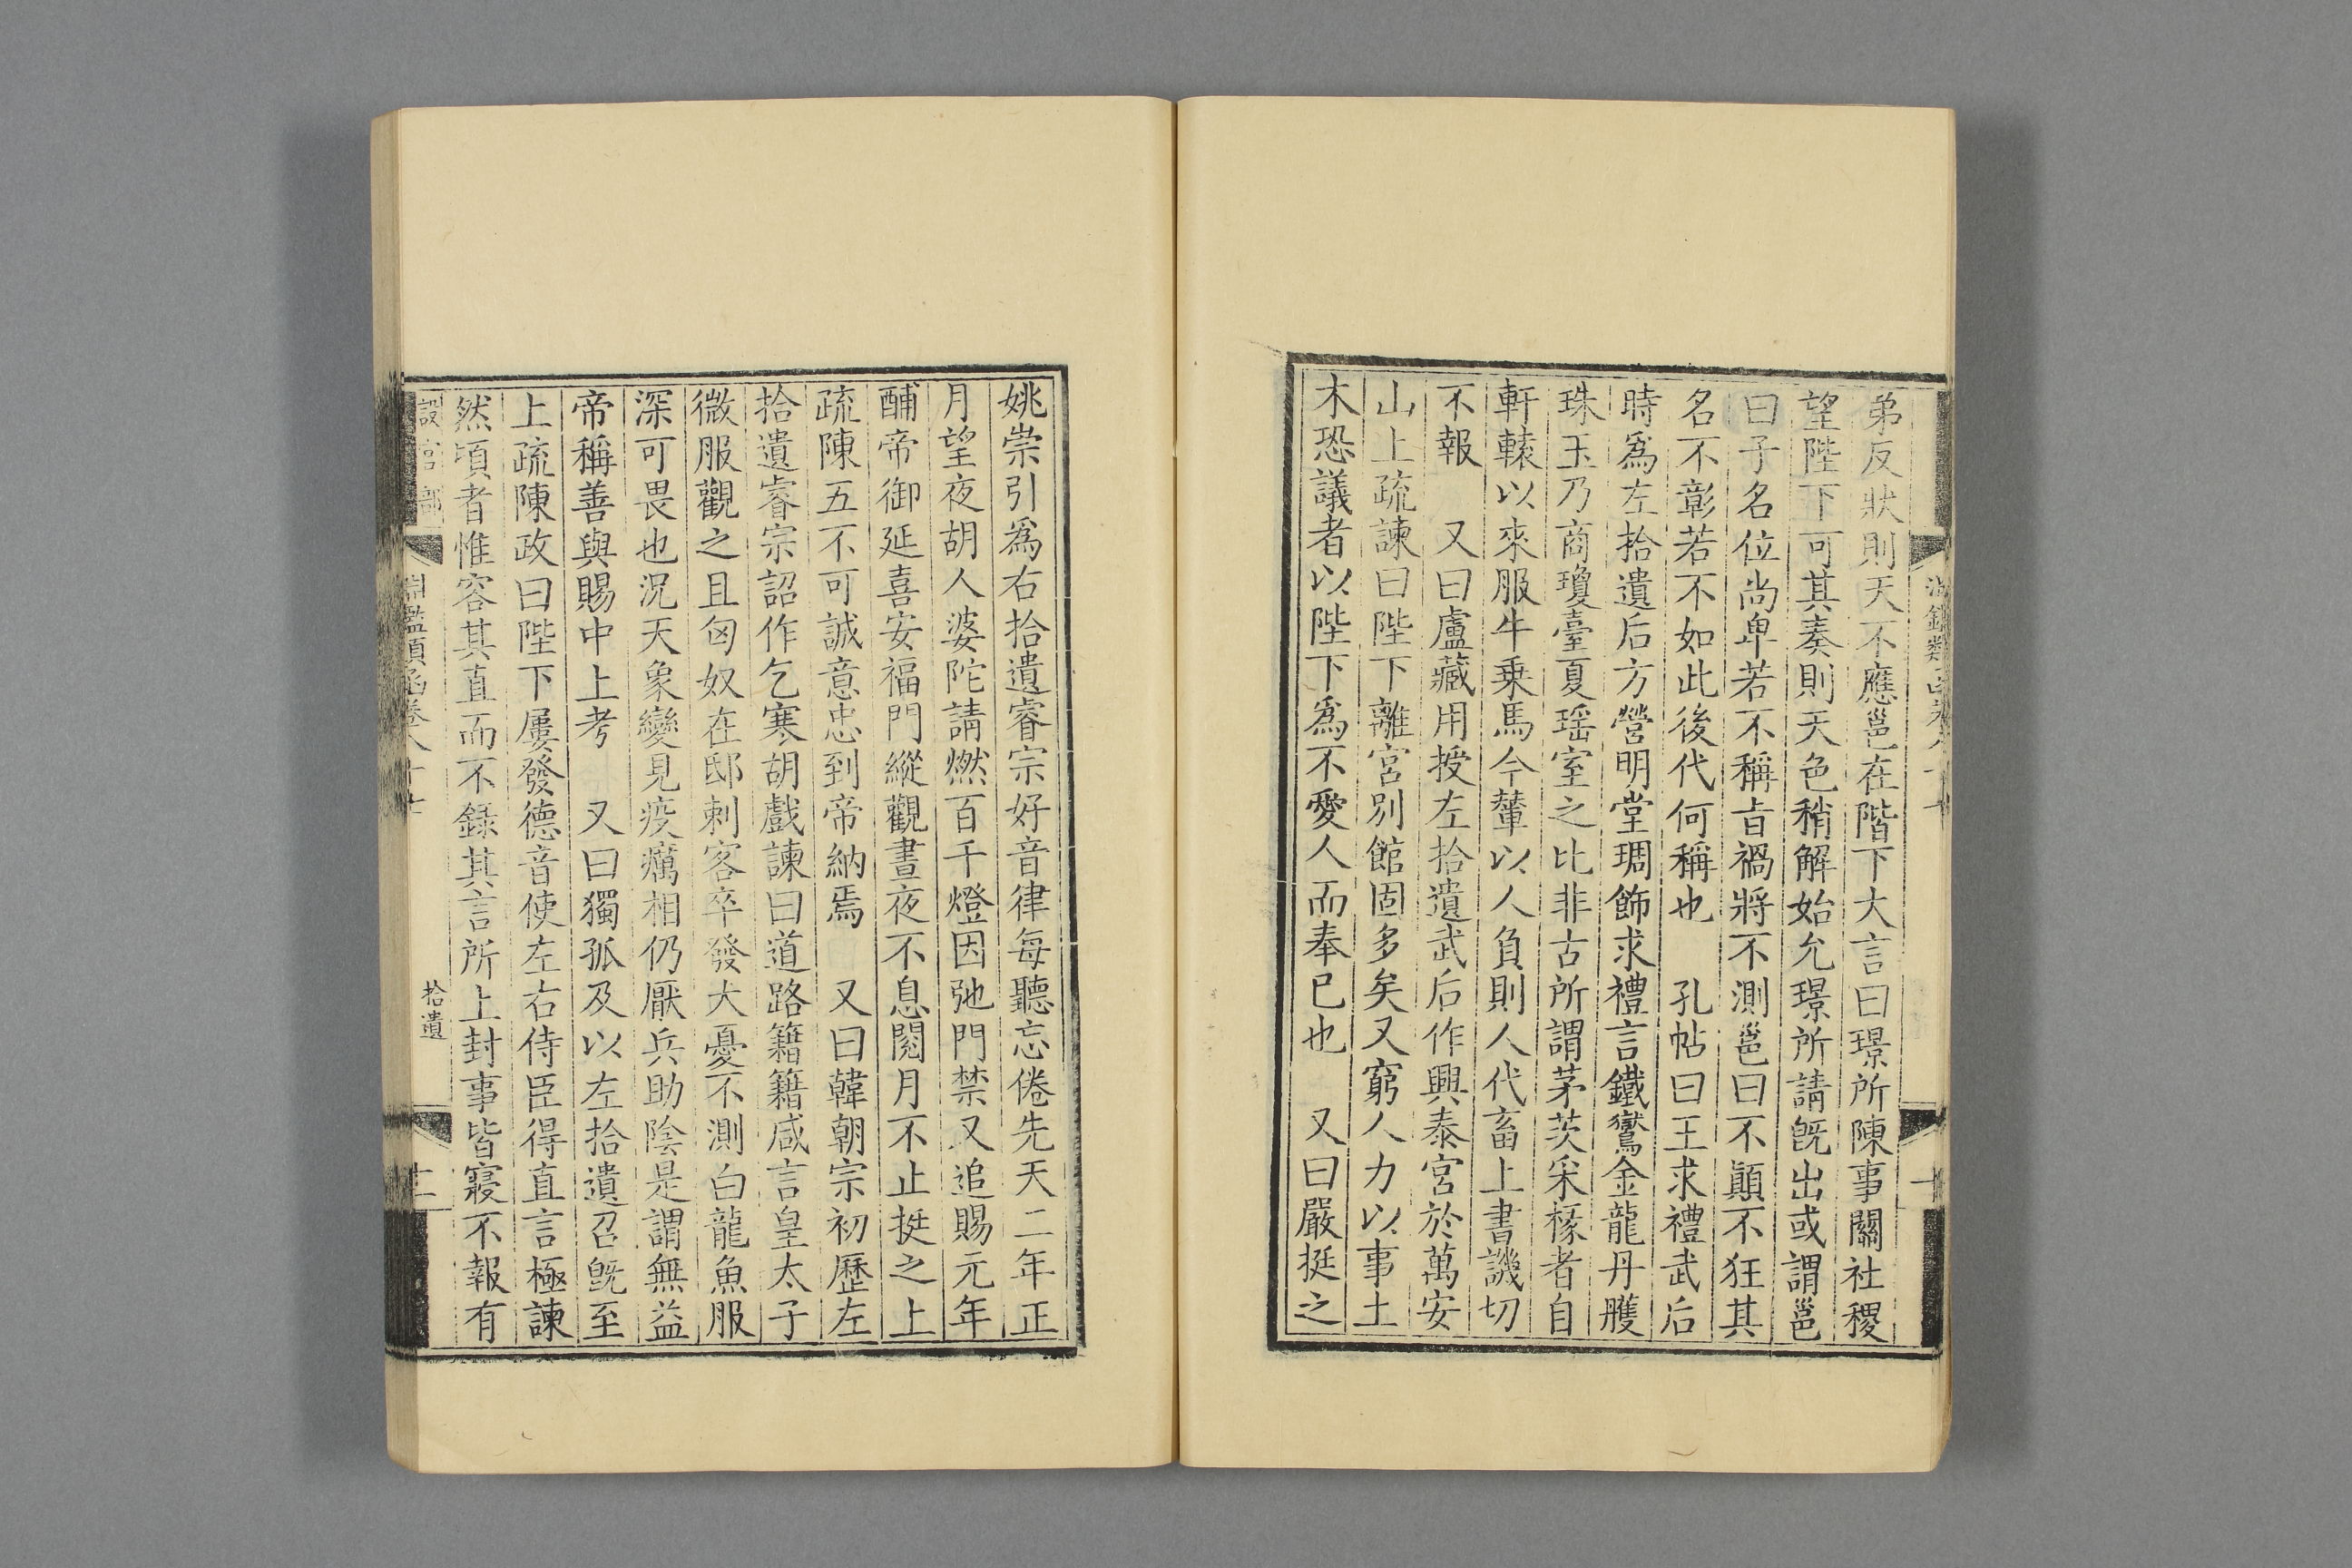 弟反狀則天不應邕在階下大言曰璟所陳事關社稷
望陛下可其奏則天色稍解始允璟所請旣出或謂邕
曰子名位尚卑若不稱旨禍將不測邕曰不顚不狂其
名不彰若不如此後代何稱也　孔帖曰王求禮武后
時爲左拾遺后方營明堂琱飾求禮言鐵鸑金龍丹雘
珠玉乃商瓊臺夏瑤室之比非古所謂茅茨采椽者自
軒轅以來服牛乗馬今輦以人負則人代畜上書譏切
不報　又曰盧藏用授左拾遺武后作興泰宮於萬安
山上疏諫曰陛下離宮別館固多矣又窮人力以事土
木恐議者以陛下爲不愛人而奉已也　又曰嚴挺之
姚崇引爲右拾遺睿宗好音律每聽忘倦先天二年正
月望夜胡人婆陀請燃百千燈因弛門禁又追賜元年
酺帝御延喜安福門縱觀晝夜不息閱月不止挺之上
疏陳五不可誠意忠到帝納焉　又曰韓朝宗初歷左
拾遺睿宗詔作乞寒胡戲諫曰道路籍籍咸言皇太子
微服觀之且匈奴在邸刺客卒發大憂不測白龍魚服
深可畏也況天象變見疫癘相仍厭兵助陰是謂無益
帝稱善與賜中上考　又曰獨孤及以左拾遺召旣至
上疏陳政曰陛下屢發德音使左右侍臣得直言極諫
然頃者惟容其直而不錄其言所上封事皆寢不報有
設官部　淵鑑類函卷八十　拾遺